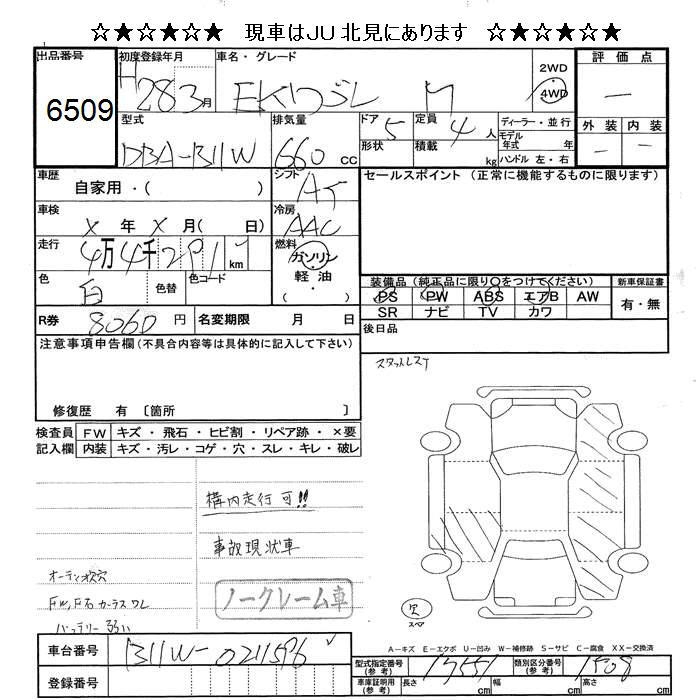 ☆★☆★☆★ 現車はJU北見にあります ☆★☆★☆★
出品番号 初度登録年月 車名・グレード 評価点
6509 H28 3月 EKワゴン M 2WD 4WD －
型式 排気量 ドア 5 定員 4人 ディーラー・並行 外装 内装
DBA-B11W 660cc 形状 積載 kg モデル年式 年式 － －
ハンドル 左・右
車歴 自家用・( ) シフト AT セールスポイント (正常に機能するものに限ります)
車検 X年X月( 日) 冷房 AAC
走行 4万4千291km 燃料 ガソリン 軽油 ・( )
色 白 色替 色コード
装備品 (純正品に限り○をつけてください) 新車保証書
PS PW ABS エアB AW 有・無
SR ナビ TV カワ
R券 8060円 名変期限 月 日 後日品
注意事項申告欄(不具合内容等は具体的に記入して下さい) スタットレスT
修復歴 有 [箇所 ]
検査員 FW キズ・飛石・ヒビ割・リペア跡・×要
記入欄 内装 キズ・汚レ・コゲ・穴・スレ・キレ・破レ
構内走行可!!
事故現状車
オーディオ欠穴
FW,F右ガラスワレ
バッテリー弱い
ノークレーム車
欠
スペア
A－キズ E－エクボ U－凹み W－補修跡 S－サビ C－腐食 XX－交換済
車台番号 B11W-0211596
型式指定番号(参考) 17551 類別区分番号(参考) 1508
登録番号 車庫証明用(参考) 長さ cm 幅 cm 高さ cm